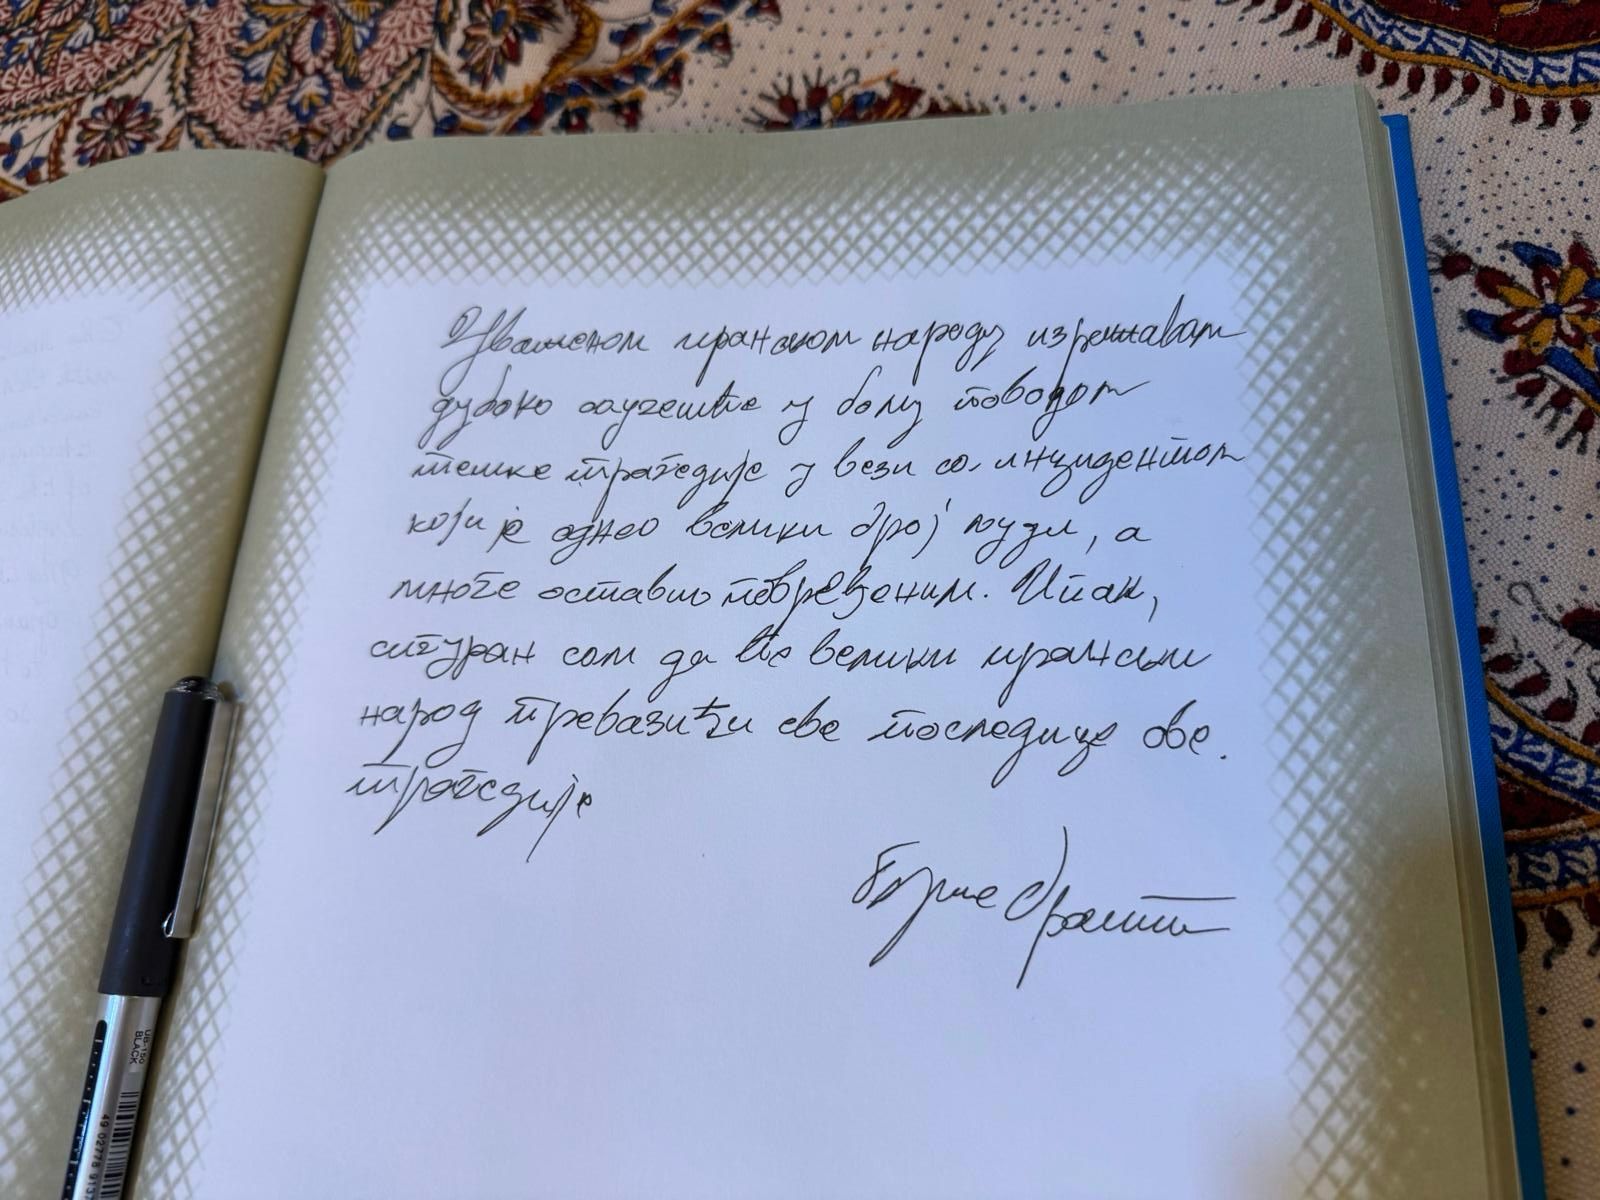 Уваженом иранском народу изражавам
дубоко саучешће у болу поводом
тешке трагедије у вези са инцидентом
који је однео велики број људи, а
многе оставио повређеним. Ипак,
сигуран сам да ће велики ирански
народ превазићи све последице ове
трагедије
UB-150
BLACK
49 02778 913